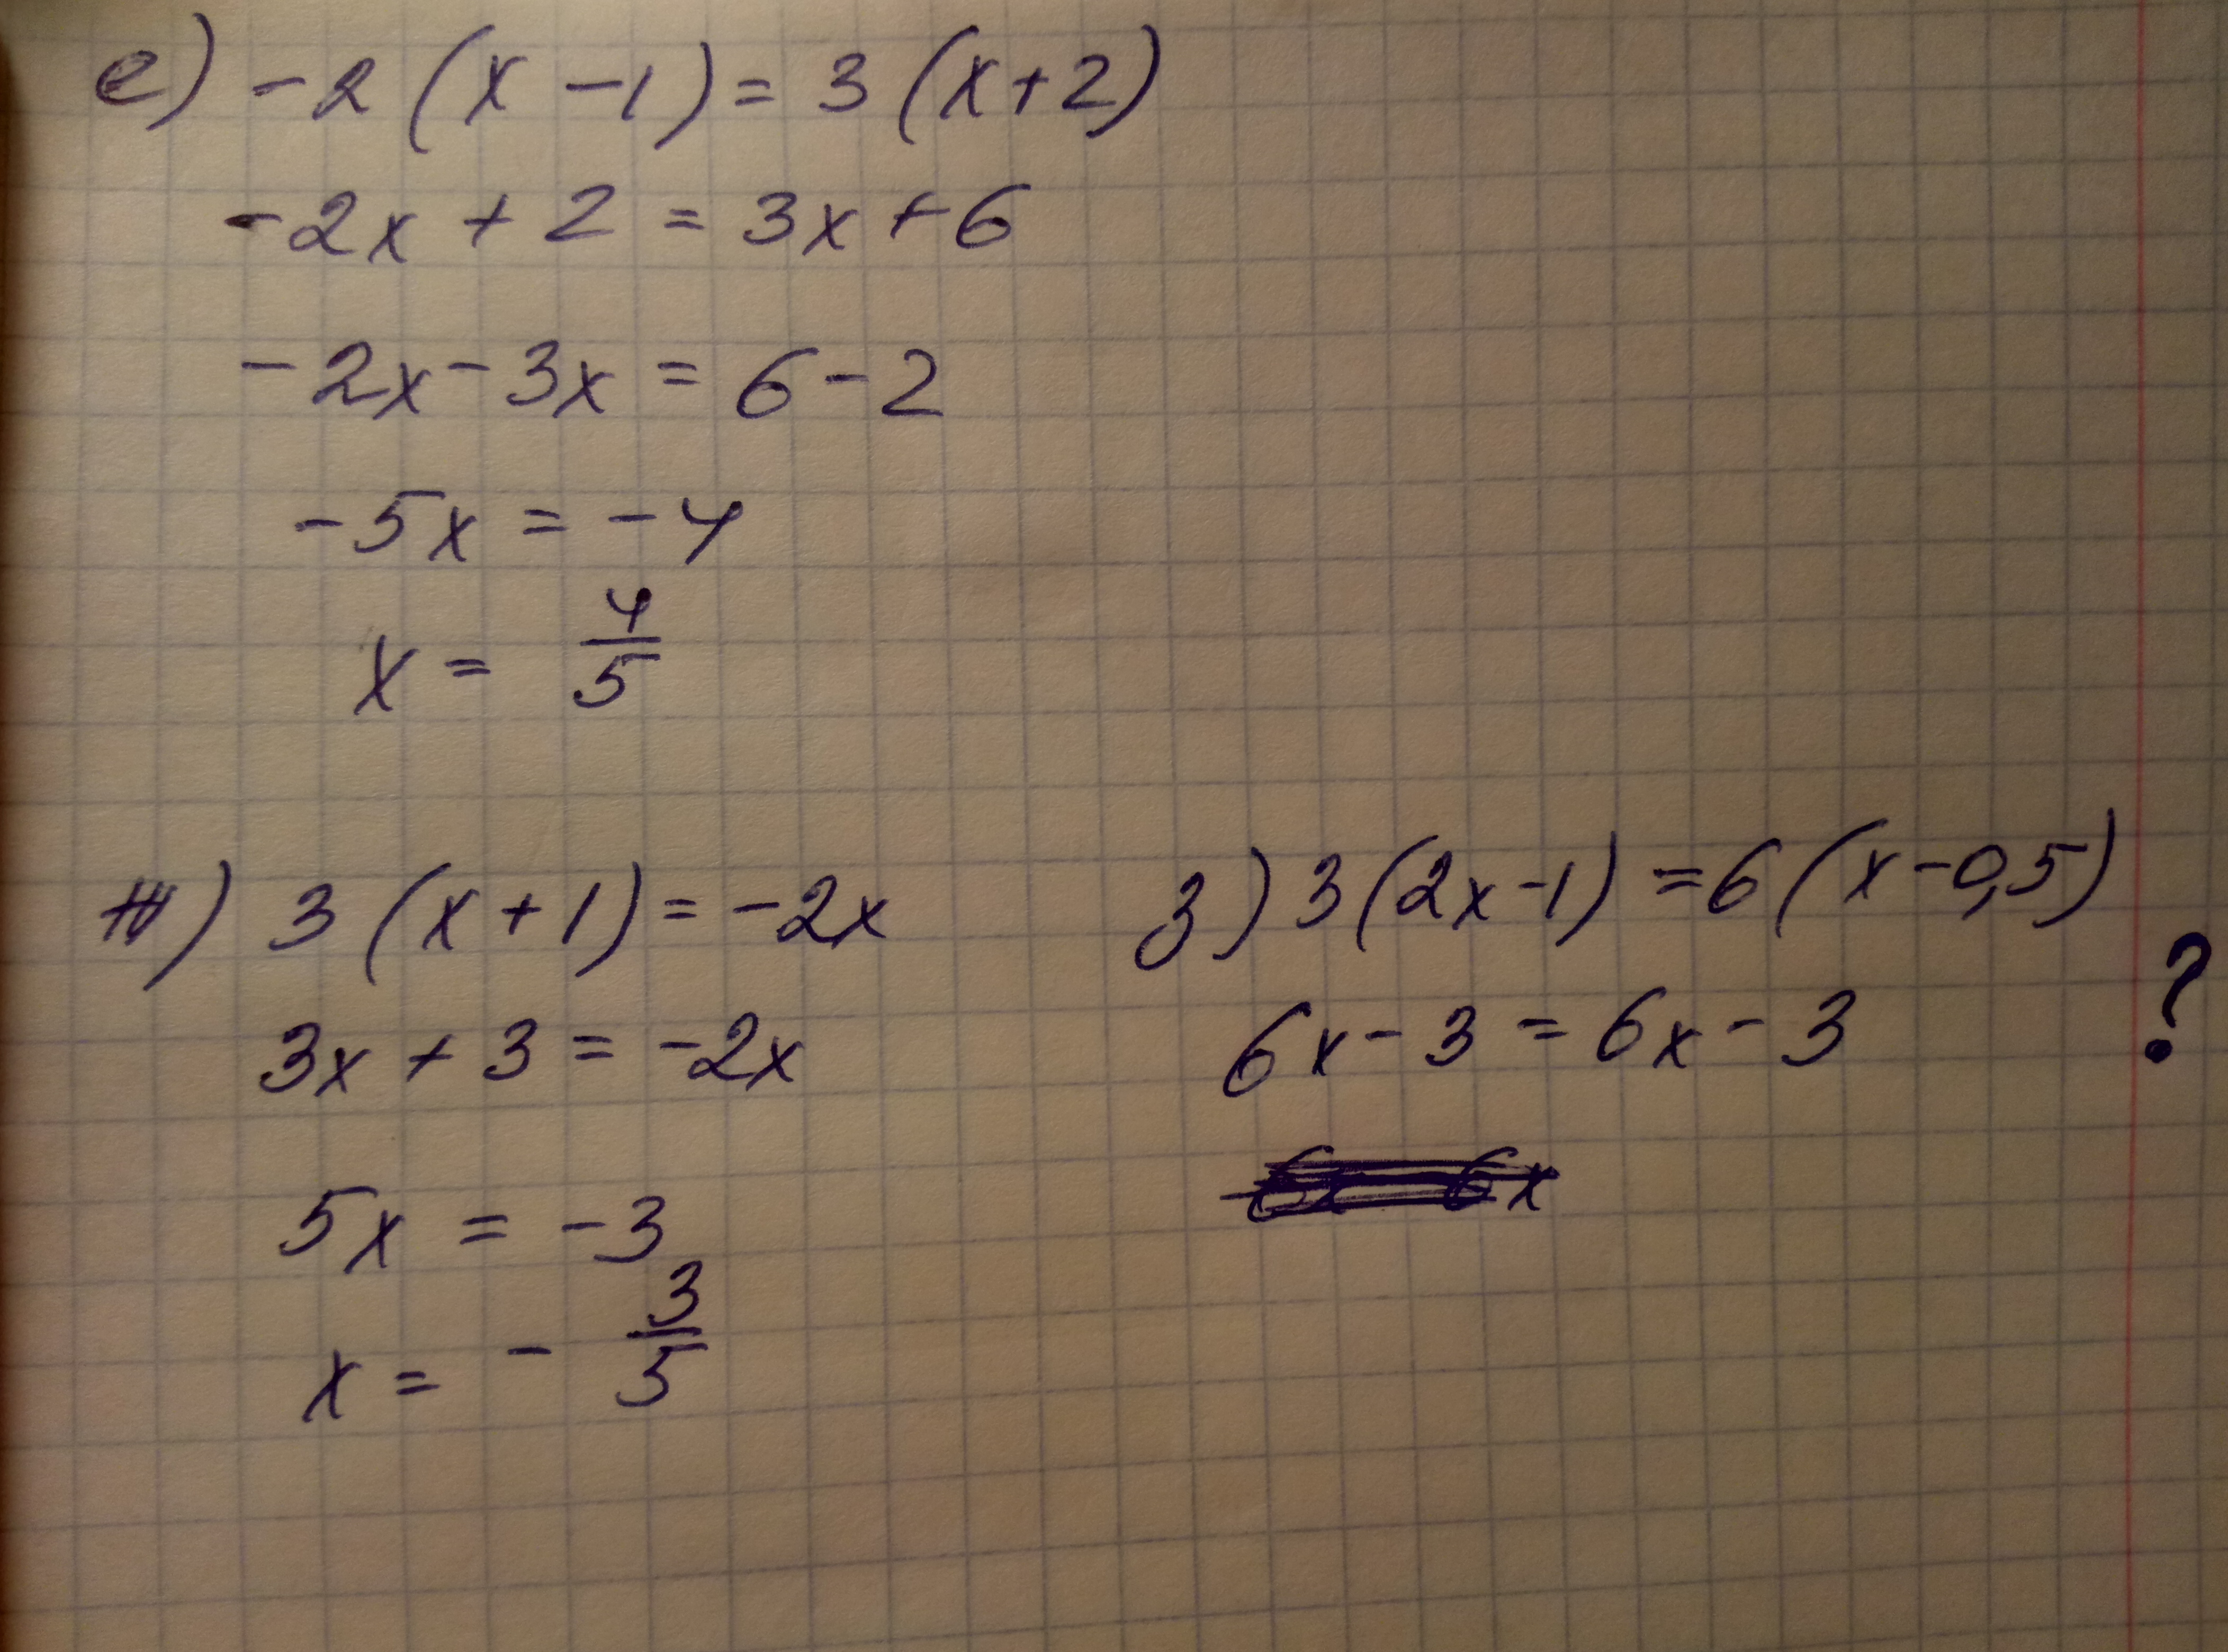 е) -2(x-1)=3(x+2)
-2x+2=3x+6
-2x-3x=6-2
-5x=-4
x=4/5
ж) 3(x+1)=-2x
3x+3=-2x
5x=-3
x=-3/5
з) 3(2x-1)=6(x-0,5)
6x-3=6x-3
?